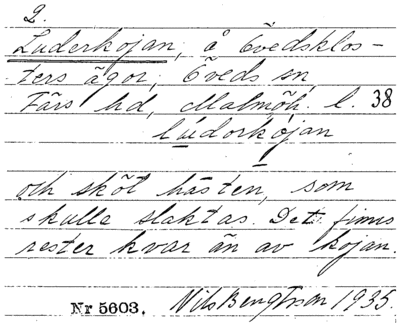 2.
Luderkojan, å Övedsklos-
ters ägor, Öveds sn,
Färs hd, Malmöh. l. 38
lúdorkojan
och sköt hästen, som
skulle slaktas. Det finns
rester kvar än av kojan.
Nr 5603. Nils Bengtsson 1935.